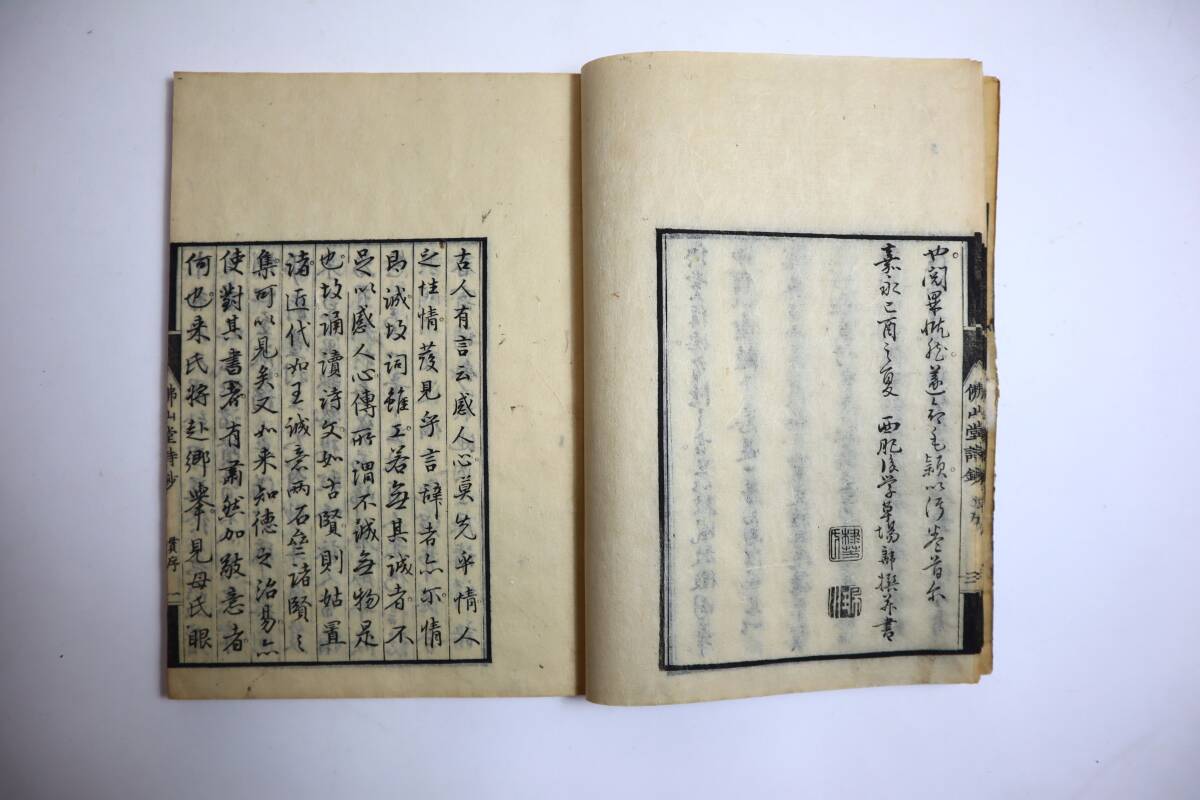 也閲畢慨然遂子毛穎以汚巻首尓
嘉永己酉之夏 西肥後学草場韡撰并書
佛山堂詩鈔
三
古人有言云感人心莫先乎情人
之性情發見乎言辞者亦尓情
即誠故詞雖工若無其誠者不
足以感人心傳所謂不誠無物是
也故誦讀詩文如古賢則姑置
諸近代如王誠意兩石竺諸賢之
集可以見矣又如来知德之治易亦
使對其書者有肅然加敬意者
何也来氏将赴郷擧見母氏眼
佛山堂詩鈔
貫序
一